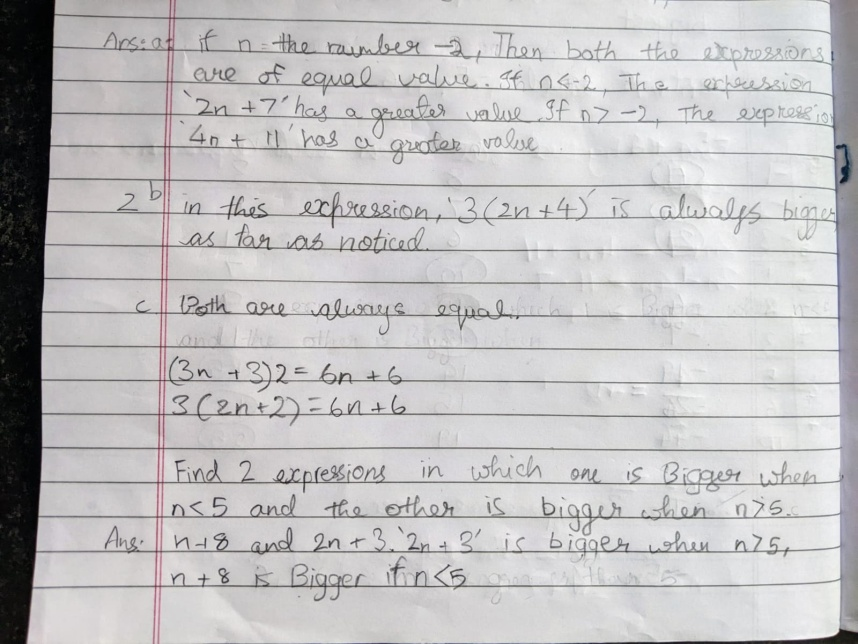 Ans: a: if n = the number -2, Then both the expressions
are of equal value. If n<-2, The expression
'2n +7' has a greater value. If n> -2, The expression
'4n + 11' has a greater value.
2 b in this expression, '3(2n+4)' is always bigger
as far as noticed.
c. Both are always equal.
(3n +3)2= 6n +6
3(2n+2)=6n+6
Find 2 expressions in which one is Bigger when
n<5 and the other is bigger when n>5.
Ans: n+8 and 2n + 3. '2n + 3' is bigger when n>5,
n + 8 is Bigger if n<5